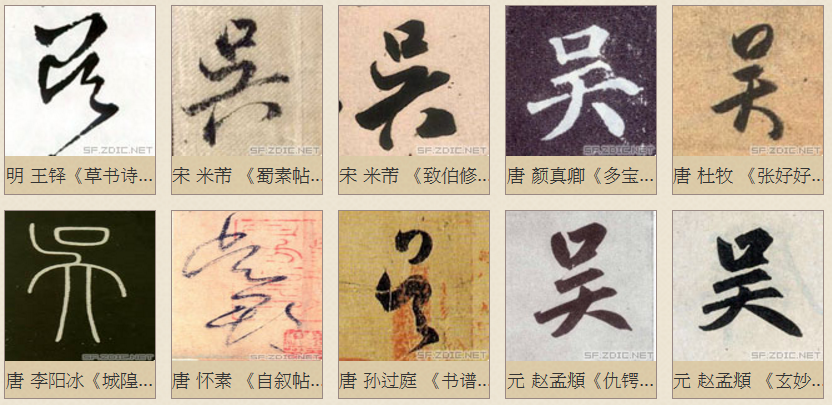 吴 吴 吴 吴 吴
SF.ZDIC.NET SF.ZDIC.NET SF.ZDIC.NET SF.ZDIC.NET SF.ZDIC.NET
明 王铎《草书诗... 宋 米芾 《蜀素帖... 宋 米芾 《致伯修... 唐 颜真卿《多宝... 唐 杜牧 《张好好...
吴 吴 吴 吴
SF.ZDIC.NET SF.ZDIC.NET SF.ZDIC.NET SF.ZDIC.NET SF.ZDIC.NET
唐 李阳冰《城隍... 唐 怀素 《自叙帖... 唐 孙过庭 《书谱... 元 赵孟頫《仇锷... 元 赵孟頫 《玄妙...